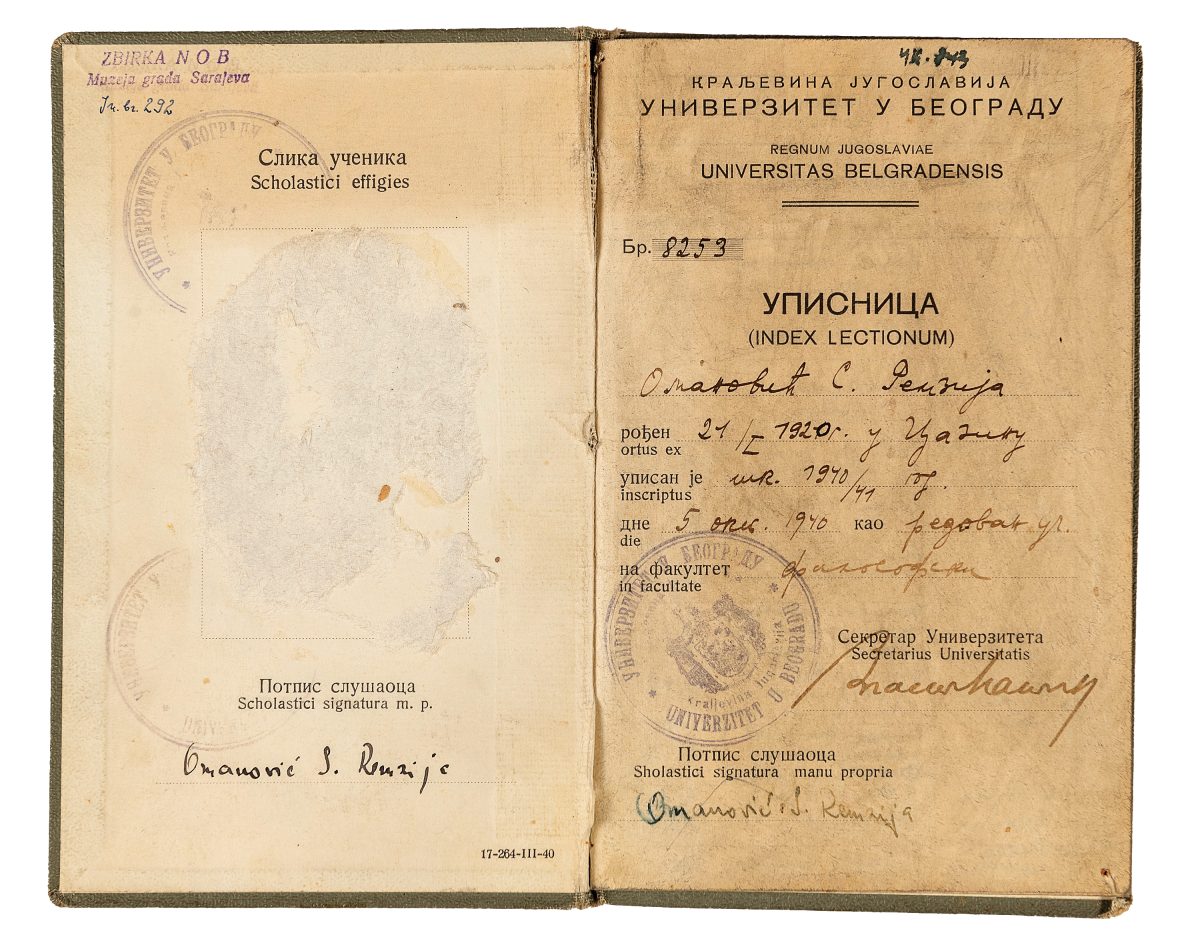 ZBIRKA N O B
Muzeja grada Sarajeva
In. br. 292
УНИВЕРЗИТЕТ У БЕОГРАДУ
Слика ученика
Scholastici effigies
УНИВЕРЗИТЕТ У
Потпис слушаоца
Scholastici signatura m. p.
Omanović S. Remzija
17-264-III-40
КРАЉЕВИНА ЈУГОСЛАВИЈА
УНИВЕРЗИТЕТ У БЕОГРАДУ
REGNUM JUGOSLAVIAE
UNIVERSITAS BELGRADENSIS
Бр. 8253
УПИСНИЦА
(INDEX LECTIONUM)
Омановић С. Ремзија
рођен 21/I 1920 г. у Цазину
ortus ex
уписан је шк. 1940/41 год.
inscriptus
дне 5 окт. 1940 као редован уч.
die
на факултет филозофски
in facultate
УНИВЕРЗИТЕТ У БЕОГРАДУ
Kraljevina Jugoslavija
UNIVERZITET U BEOGRADU
Секретар Универзитета
Secretarius Universitatis
Потпис слушаоца
Sholastici signatura manu propria
Omanović S. Remzija